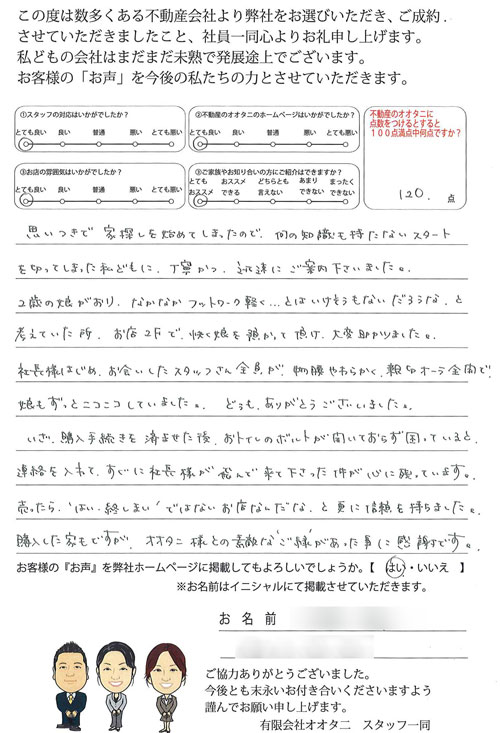 この度は数多くある不動産会社より弊社をお選びいただき、ご成約.
させていただきましたこと、社員一同心よりお礼申し上げます。
私どもの会社はまだまだ未熟で発展途上でございます。
お客様の「お声」を今後の私たちの力とさせていただきます。
①スタッフの対応はいかがでしたか?
とても良い 良い 普通 悪い とても悪い
②不動産のオオタニのホームページはいかがでしたか?
とても良い 良い 普通 悪い とても悪い
③お店の雰囲気はいかがでしたか?
とても良い 良い 普通 悪い とても悪い
③ご家族やお知り合いの方にご紹介はできますか?
とても おススメ どちらとも あまり まったく
おススメ できる 言えない できない できない
不動産のオオタニに
点数をつけるとすると
100点満点中何点ですか?
120. 点
思いつきで 家探しを始めてしまったので、何の知識も持たないスタート
を切ってしまった私どもに、丁寧かつ、迅速に ご案内下さいました。
2歳の娘がおり、なかなか フットワーク軽く…とは いけそうもないだろうな、と
考えていた所、お店2Fで、快く娘を預かって頂け、大変助かりました。
社長様はじめ、お会いしたスタッフさん全員が、物腰やわらかく、親切オーラ全開で、
娘もずっとニコニコしていました。どうも、ありがとうございました。
いざ、購入手続きを済ませた後、おトイレのボルトが開いておらず困っていると、
連絡を入れて、すぐに社長様が飛んで来て下さった件が心に残っています。
売ったら、'はい、終しまい'ではないお店なんだな、と更に信頼を持ちました。
購入した家もですが、オオタニ様との素敵な'ご縁'があった事に感謝です。
お客様の『お声』を弊社ホームページに掲載してもよろしいでしょうか。【 はい・いいえ 】
※お名前はイニシャルにて掲載させていただきます。
お 名 前
ご協力ありがとうございました。
今後とも末永いお付き合いくださいますよう
謹んでお願い申し上げます。
有限会社オオタニ スタッフ一同